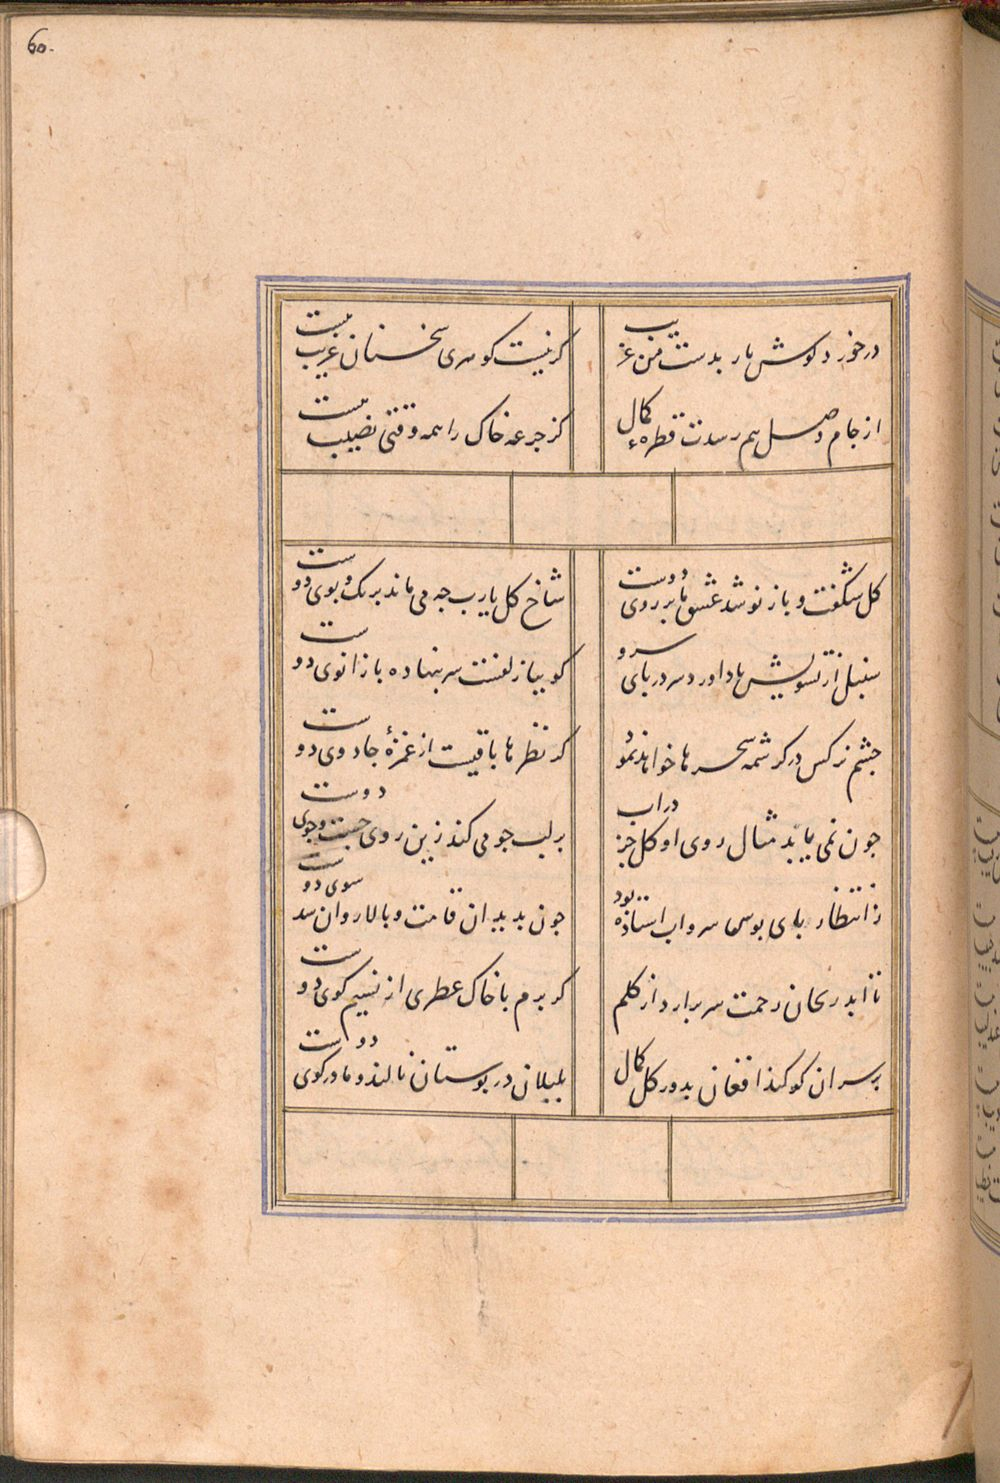 60.
درخورد کوش یار بدست من غریب
کر نیست کوهری سخنان غریب هست
از جام وصل هم رسدت قطرهٔ کمال
کز جرعه خاک را همه وقتی نصیب هست
کل شکفت و باز نو شد عشق ما بر روی دوست
شاخ کل یارب چه می ماند برنک و بوی دوست
سنبل از تشویش باد اورد سر در پای سرو
کوییا زلفست سر بنهاده با زانوی دوست
چشم نرکس در کرشمه سحرها خواهد نمود
کر نظرها باقیست از غمزهٔ جادوی دوست
چون نمی یابد مثال روی او کل جز دراب
بر لب جو می کند زین روی جست وجوی دوست
زانتظار پای بوس سرو اب استاده بود
چون بدید ان قامت و بالا روان شد سوی دوست
تا ابد ریحان رحمت سر برارد از کلم
کر برم با خاک عطری از نسیم کوی دوست
بر سر ان کو کند افغان بدور کل کمال
بلبلان در بوستان نالند و ما در کوی دوست